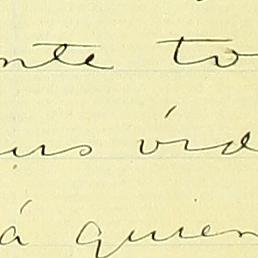 nte to
us órd
á quien